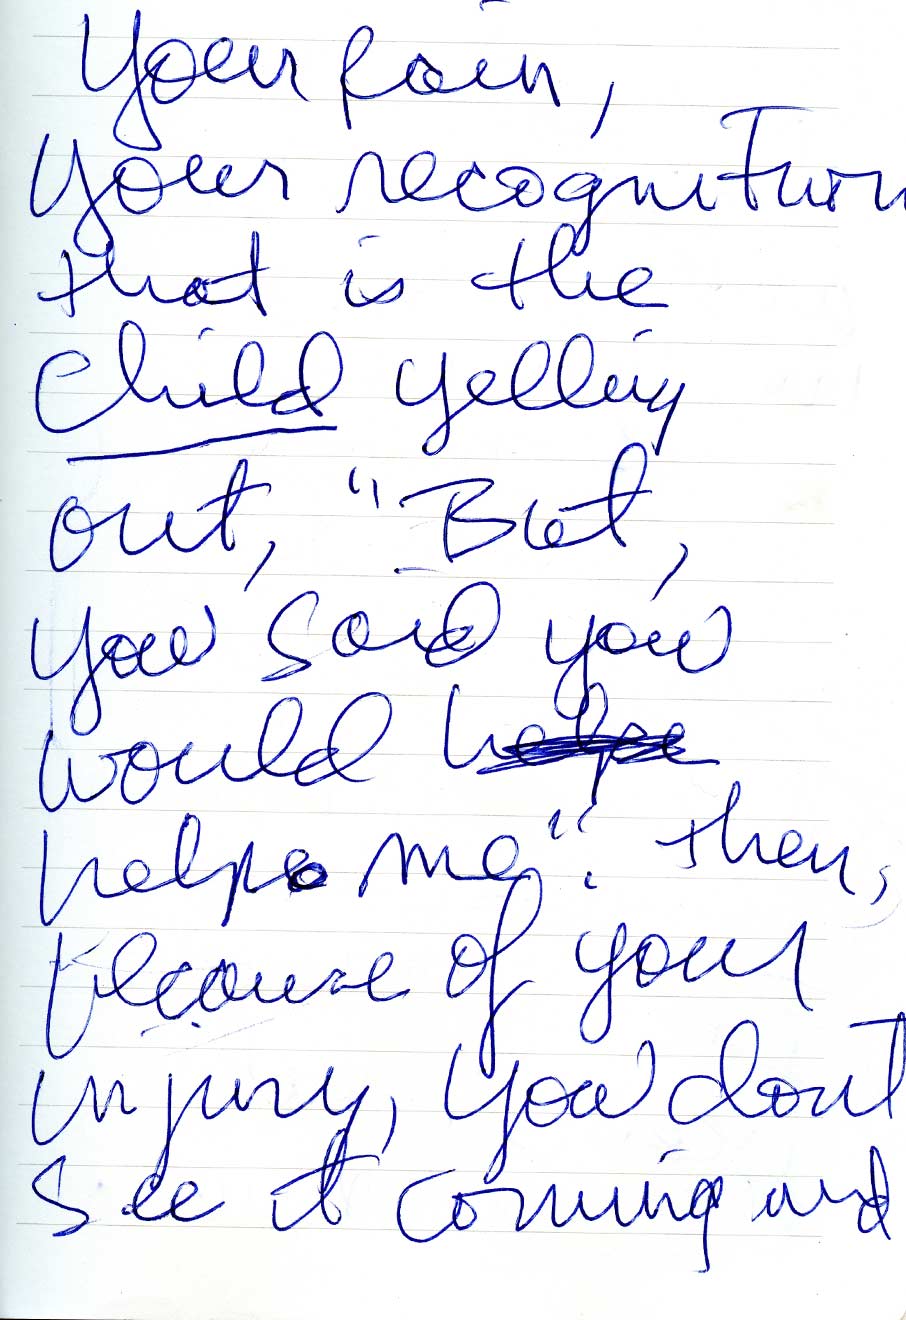 Your pain,
Your recognition
that is the
Child yelling
out, "But,
you said you
would helpe
help me". Then,
because of your
injury, you dont
see it coming and